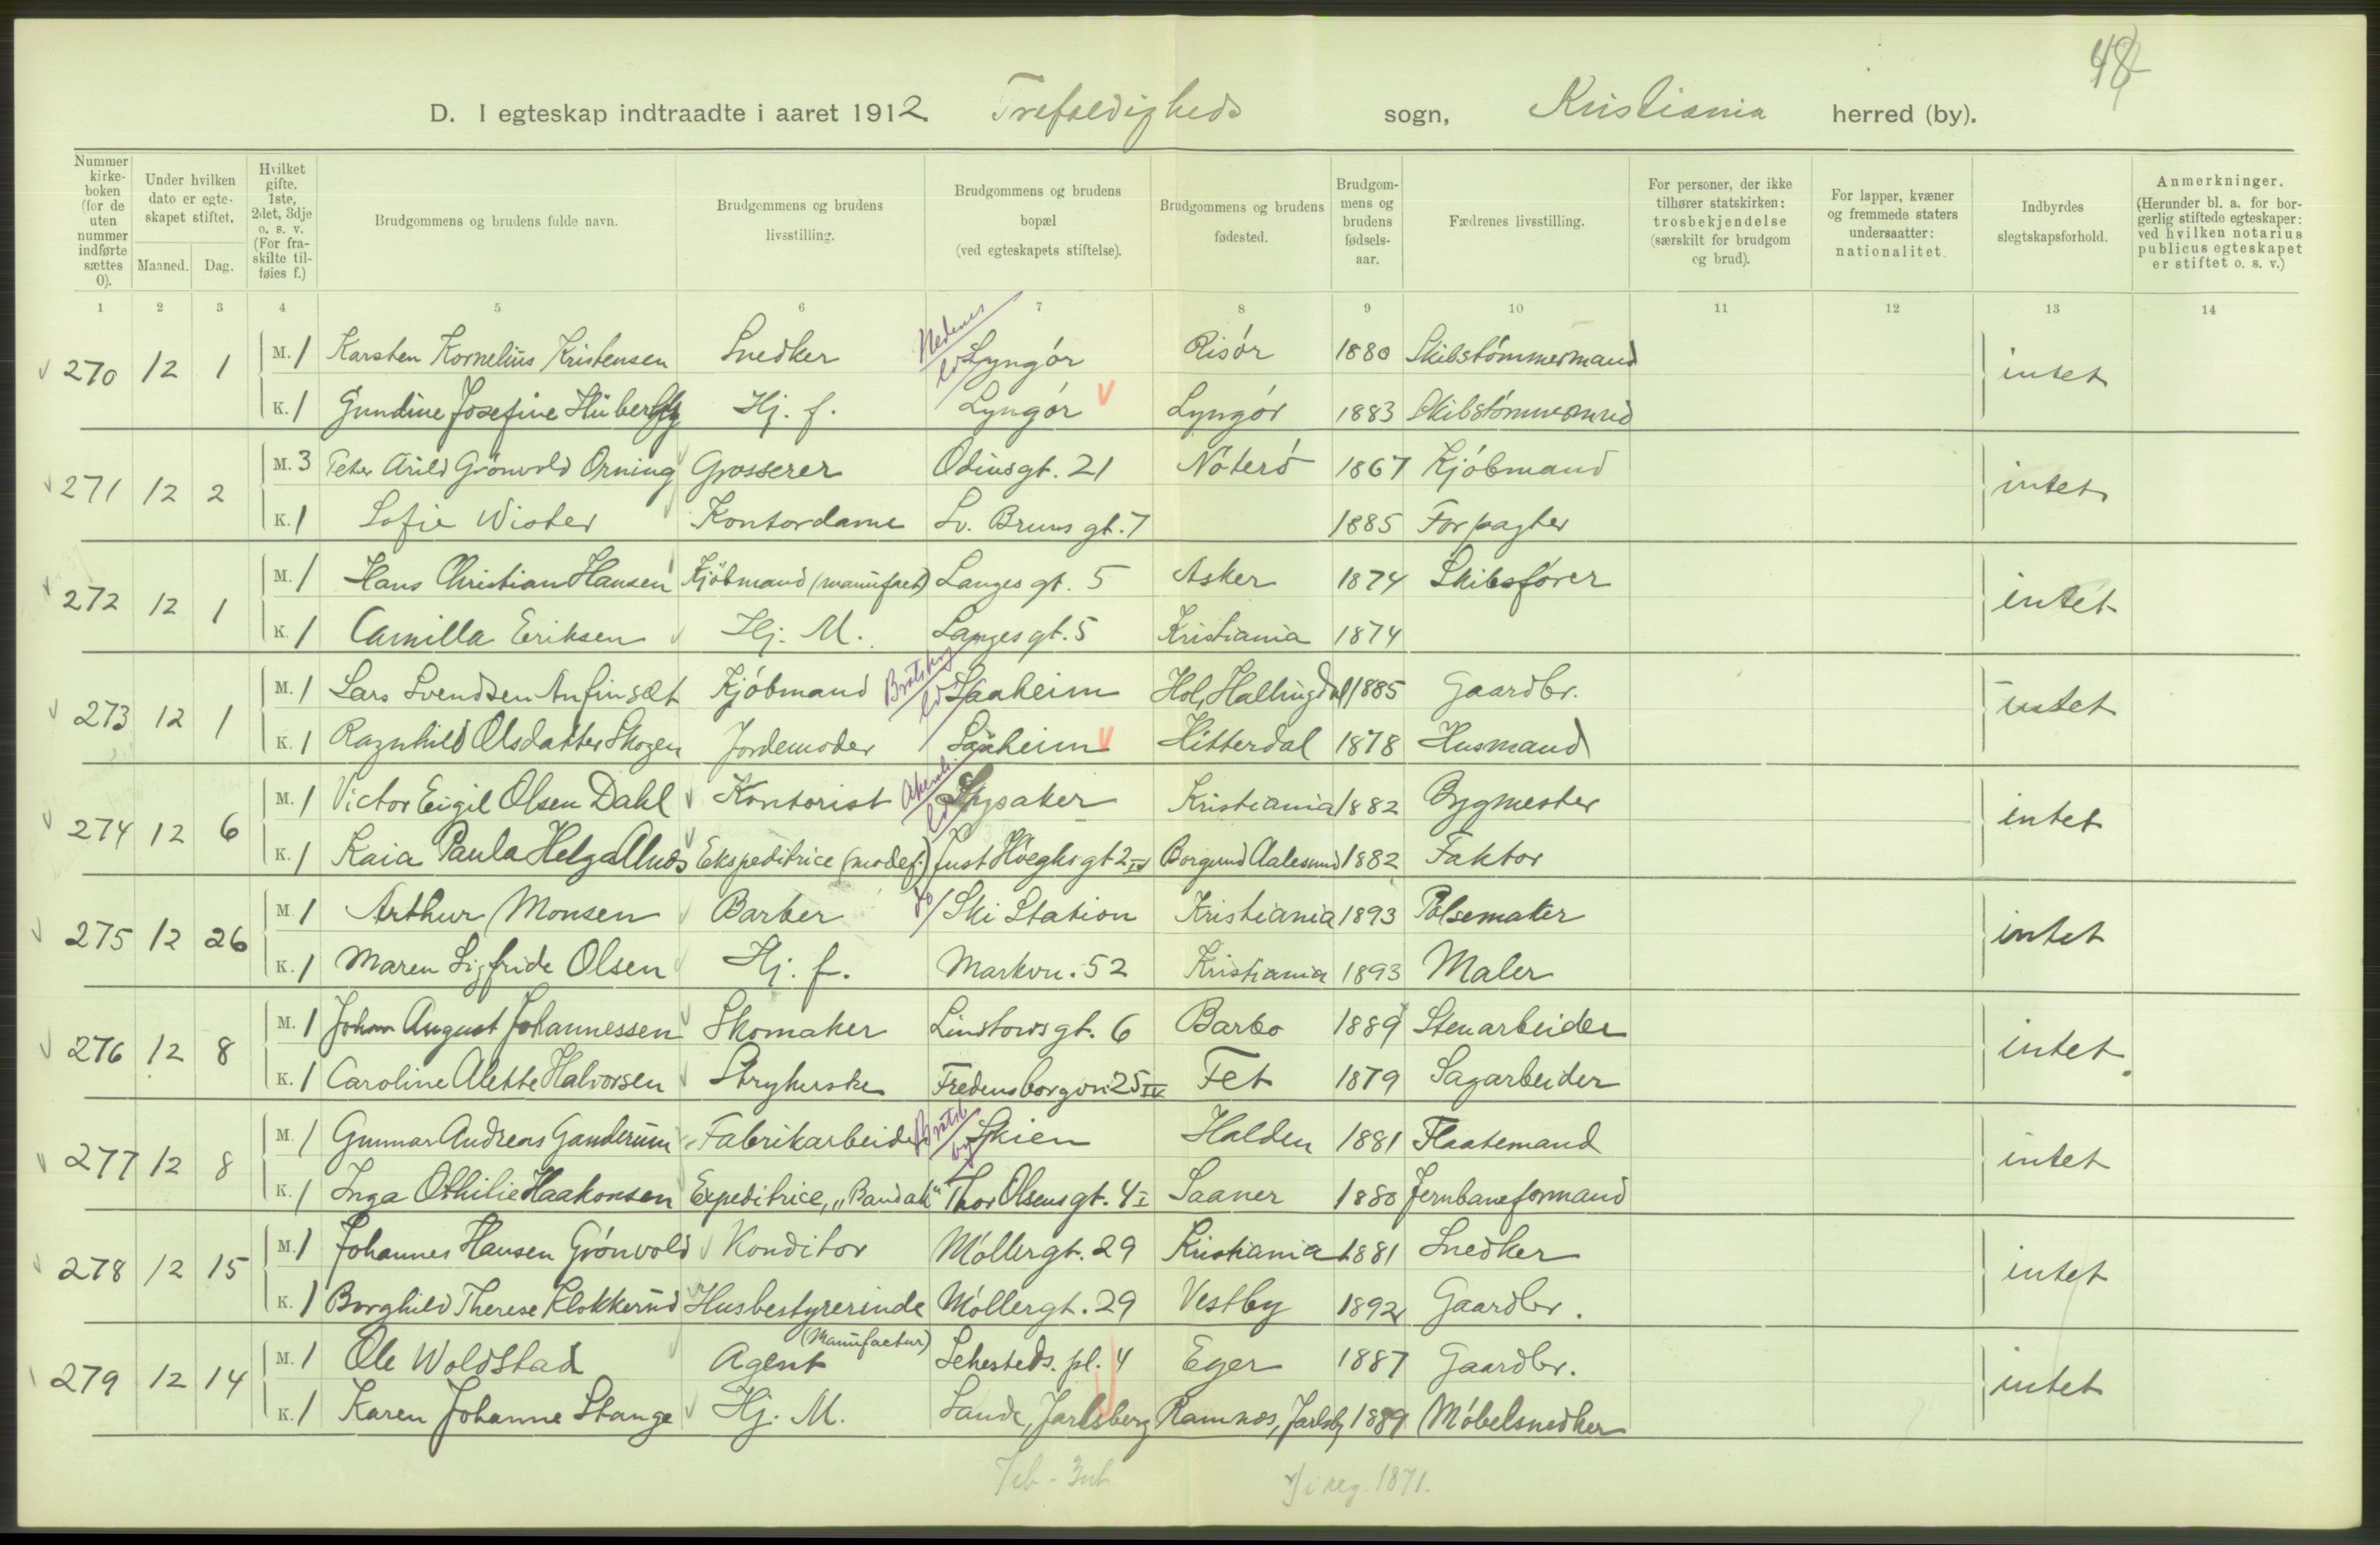 48
D. I egteskap indtraadte i aaret 1912 Trefoldigheds sogn, Kristiania herred (by).
Nummer kirkeboken (for de uten nummer indførte sættes 0).
Under hvilken dato er egteskapet stiftet. Maaned. Dag.
Hvilket gifte. 1ste, 2det, 3dje o. s. v. (For fraskilte tilføies f.)
Brudgommens og brudens fulde navn.
Brudgommens og brudens livsstilling.
Brudgommens og brudens bopæl (ved egteskapets stiftelse).
Brudgommens og brudens fødested.
Brudgommens og brudens fødselsaar.
Fædrenes livsstilling.
For personer, der ikke tilhører statskirken: trosbekjendelse (særskilt for brudgom og brud).
For lapper, kvæner og fremmede staters undersaatter: nationalitet.
Indbyrdes slegtskapsforhold.
Anmerkninger. (Herunder bl. a. for borgerlig stiftede egteskaper: ved hvilken notarius publicus egteskapet er stiftet o. s. v.)
1 2 3 4 5 6 7 8 9 10 11 12 13 14
270 12 1 M. 1 Karsten Kornelius Kristensen Snedker Nedenes ld Lyngör Risör 1880 Skibstømmermand intet
K. 1 Gundine Josefine Hj. f. Lyngör Lyngör 1883
271 12 2 M. 3 Peter Arild Grönvold Orning Grosserer Odinsgt. 21 Nöterö 1867 Kjöbmand intet
K. 1 Sofie Wister Kontordame Lv. Bruns gt. 7 1885 Forpagter
272 12 1 M. 1 Hans Christian Hansen Kjöbmand (manufact) Langes gt. 5 Asker 1874 Skibsfører intet
K. 1 Camilla Eriksen Hj. M. Langes gt. 5 Kristiania 1874
273 12 1 M. 1 Lars Svendsen Anfinsæt Kjöbmand Bratsberg ld Saaheim Hol, Hallingdal 1885 Gaardbr. intet
K. 1 Ragnhild Olsdatter Skogen Jordemoder Saaheim Hitterdal 1878 Husmand
274 12 6 M. 1 Victor Eigil Olsen Dahl Kontorist Akersh. ld Lysaker Kristiania 1882 Bygmester intet
K. 1 Kaia Paula Helga Alnæs Ekspeditrice (modef.) Just Höeghs gt 2 IV Borgund Aalesund 1882 Faktor
275 12 26 M. 1 Arthur Monsen Barber do Ski Station Kristiania 1893 Pölsemaker intet
K. 1 Maren Sigfride Olsen Hj. f. Markvn. 52 Kristiania 1893 Maler
276 12 8 M. 1 Johan August Johannessen Skomaker Linstows gt. 6 Barbo 1889 Stenarbeider intet
K. 1 Caroline Alette Halvorsen Strykerske Fredensborgvn. 25 IV Fet 1879 Sagarbeider
277 12 8 M. 1 Gunnar Andreas Ganderum Fabrikarbeider Bratsb by Skien Halden 1881 Flaatemand intet
K. 1 Inga Othilie Haakonsen Expeditrice, "Bandak" Thor Olsens gt. 4 I Saaner 1880 Jernbaneformand
278 12 15 M. 1 Johannes Hansen Grönvold Konditor Möllergt. 29 Kristiania 1881 Snedker intet
K. 1 Borghild Therese Klokkerud Husbestyrerinde Möllergt. 29 Vestby 1892 Gaardbr.
279 12 14 M. 1 Ole Woldstad Agent (Manufactur) Sehesteds. pl. 4 Eger 1887 Gaardbr. intet
K. 1 Karen Johanne Stange Hj. M. Sande, Jarlsberg Ramnæs, Jarlsbg 1889 Möbelsnedker
i reg. 1871.